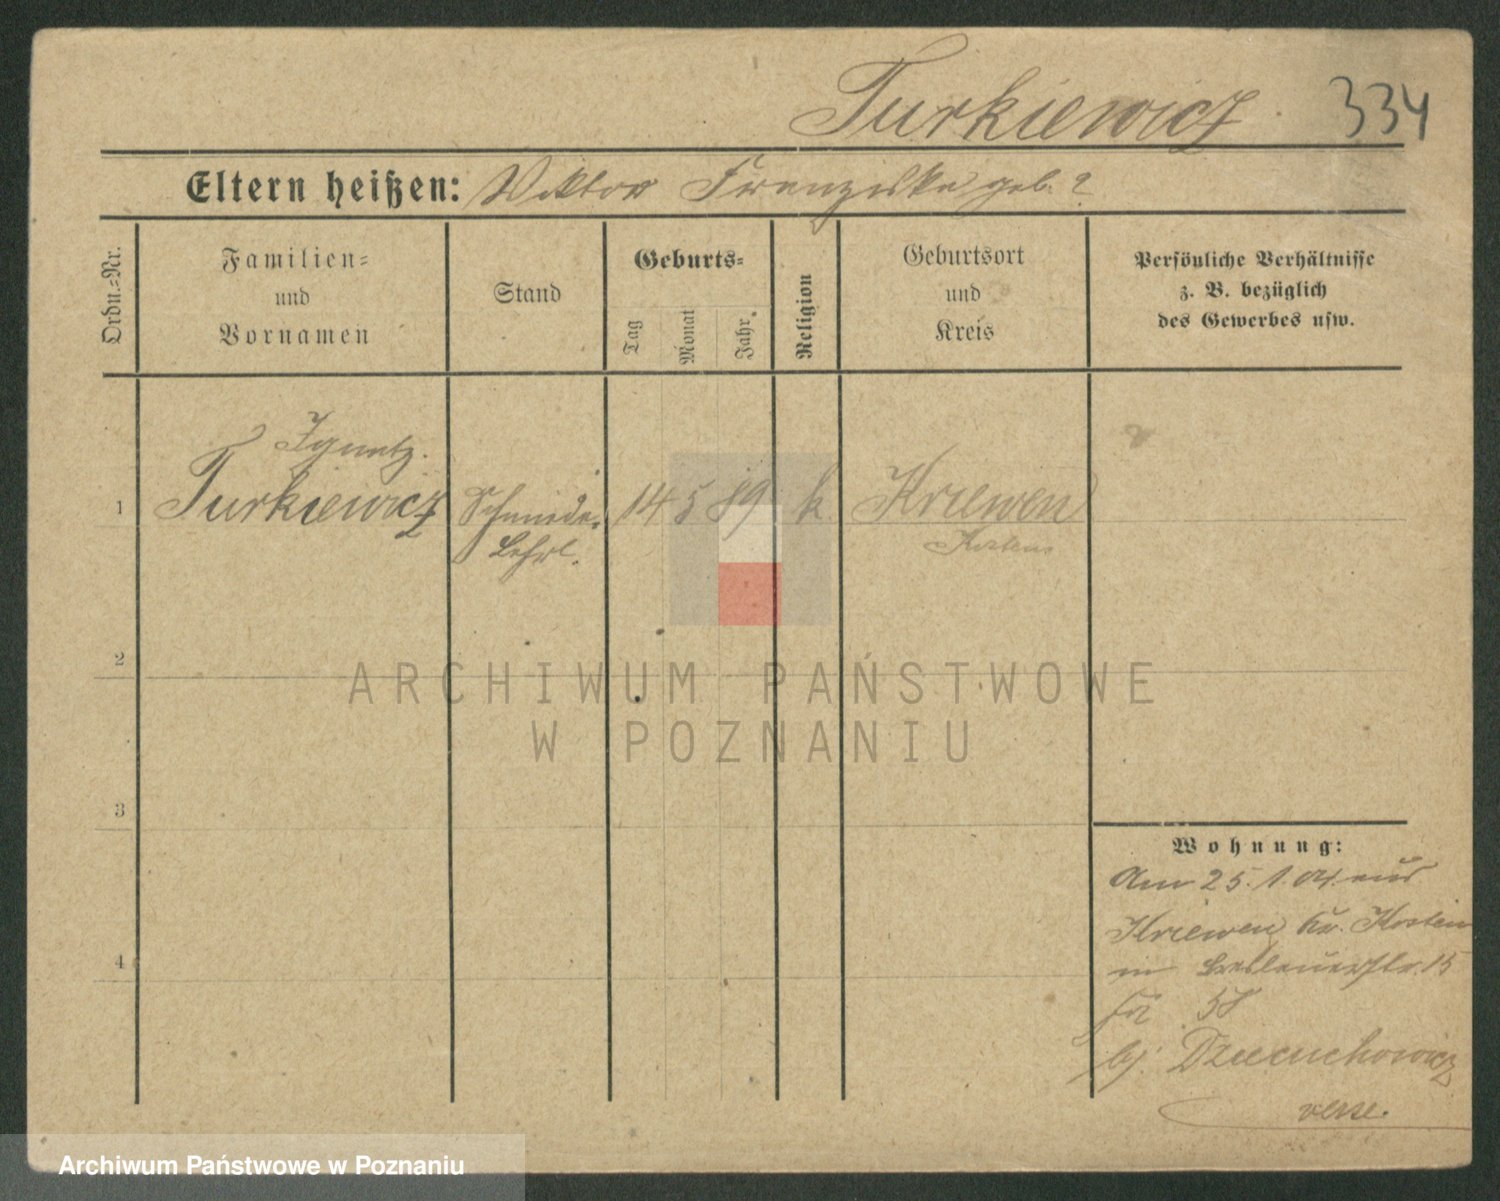 Turkiewicz 334
Eltern heißen: Viktor Franziska geb. ?
Ordn.=Nr.
Familien=
und
Vornamen
Stand
Geburts=
Tag
Monat
Jahr.
Religion
Geburtsort
und
Kreis
Persönliche Verhältnisse
z. B. bezüglich
des Gewerbes usw.
Ignatz.
1 Turkiewicz Schmiede= 14 5 89 k Kriewen
Lehrl. Kosten
2
3
4
Wohnung:
Am 25. 1. 04. aus
Kriewen Kr. Kosten
in Breslauerstr. 15
58
bj. Dziechowicz
verse.
ARCHIWUM PAŃSTWOWE
W POZNANIU
Archiwum Państwowe w Poznaniu